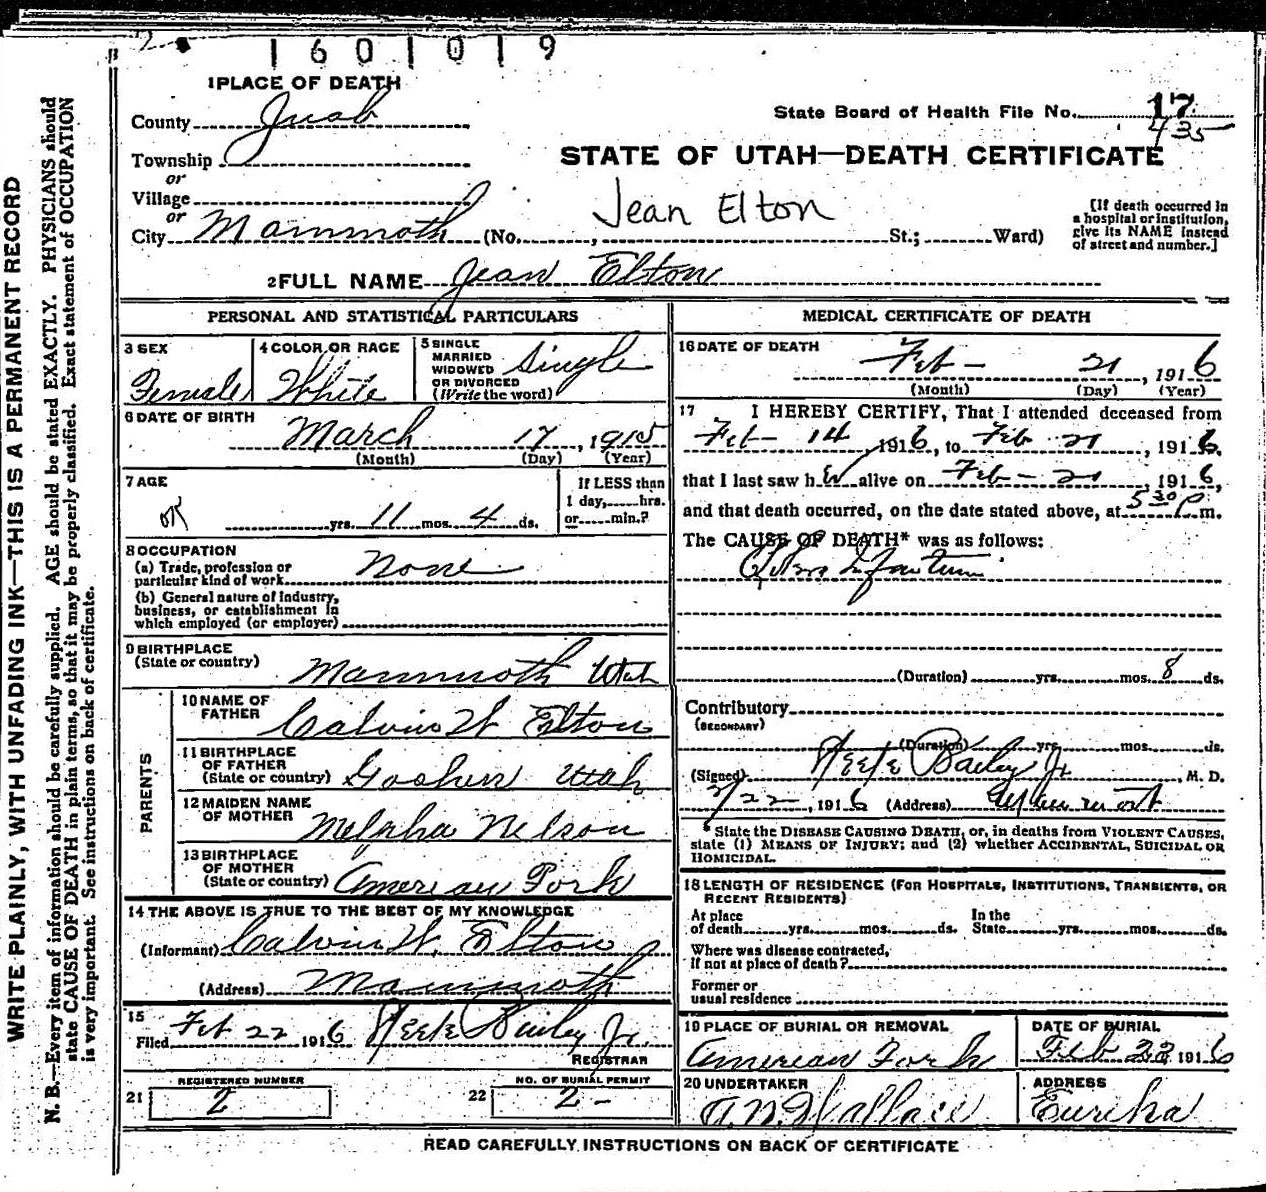 1601019
1 PLACE OF DEATH
County Juab
State Board of Health File No. 17
435
Township
or
STATE OF UTAH—DEATH CERTIFICATE
Village
or
Jean Elton
City Mammoth (No. , St.; Ward)
[If death occurred in
a hospital or institution,
give its NAME instead
of street and number.]
2 FULL NAME Jean Elton
PERSONAL AND STATISTICAL PARTICULARS
3 SEX
Female
4 COLOR OR RACE
White
5 SINGLE
MARRIED
WIDOWED
OR DIVORCED
(Write the word)
Single
6 DATE OF BIRTH
March 17, 1915
(Month) (Day) (Year)
7 AGE
yrs. 11 mos. 4 ds.
If LESS than
1 day, hrs.
or min.?
8 OCCUPATION
(a) Trade, profession or
particular kind of work None
(b) General nature of industry,
business, or establishment in
which employed (or employer)
9 BIRTHPLACE
(State or country) Mammoth Utah
PARENTS
10 NAME OF
FATHER Calvin W Elton
11 BIRTHPLACE
OF FATHER
(State or country) Goshen Utah
12 MAIDEN NAME
OF MOTHER Nelson
13 BIRTHPLACE
OF MOTHER
(State or country) American Fork
14 THE ABOVE IS TRUE TO THE BEST OF MY KNOWLEDGE
(Informant) Calvin W. Elton
(Address) Mammoth
15
Filed Feb 22 1916 Steele Bailey Jr.
REGISTRAR
21 REGISTERED NUMBER
2
22 NO. OF BURIAL PERMIT
2-
MEDICAL CERTIFICATE OF DEATH
16 DATE OF DEATH
Feb - 21, 1916
(Month) (Day) (Year)
17 I HEREBY CERTIFY, That I attended deceased from
Feb - 14, 1916, to Feb 21, 1916,
that I last saw her alive on Feb - 21, 1916,
and that death occurred, on the date stated above, at 5 30 P. m.
The CAUSE OF DEATH* was as follows:
Infantum
(Duration) yrs. mos. 8 ds.
Contributory
(SECONDARY)
(Duration) yrs. mos. ds.
(Signed) Steele Bailey Jr M. D.
2/22, 1916 (Address) Mammoth
* State the DISEASE CAUSING DEATH, or, in deaths from VIOLENT CAUSES,
state (1) MEANS OF INJURY; and (2) whether ACCIDENTAL, SUICIDAL OR
HOMICIDAL.
18 LENGTH OF RESIDENCE (FOR HOSPITALS, INSTITUTIONS, TRANSIENTS, OR
RECENT RESIDENTS)
At place
of death yrs. mos. ds.
In the
State yrs. mos. ds.
Where was disease contracted,
If not at place of death?
Former or
usual residence
19 PLACE OF BURIAL OR REMOVAL
American Fork
DATE OF BURIAL
Feb 22 1916
20 UNDERTAKER
A. N. Wallace
ADDRESS
Eureka
READ CAREFULLY INSTRUCTIONS ON BACK OF CERTIFICATE
WRITE PLAINLY, WITH UNFADING INK—THIS IS A PERMANENT RECORD
N. B.—Every item of information should be carefully supplied. AGE should be stated EXACTLY. PHYSICIANS should
state CAUSE OF DEATH in plain terms, so that it may be properly classified. Exact statement of OCCUPATION
is very important. See instructions on back of certificate.